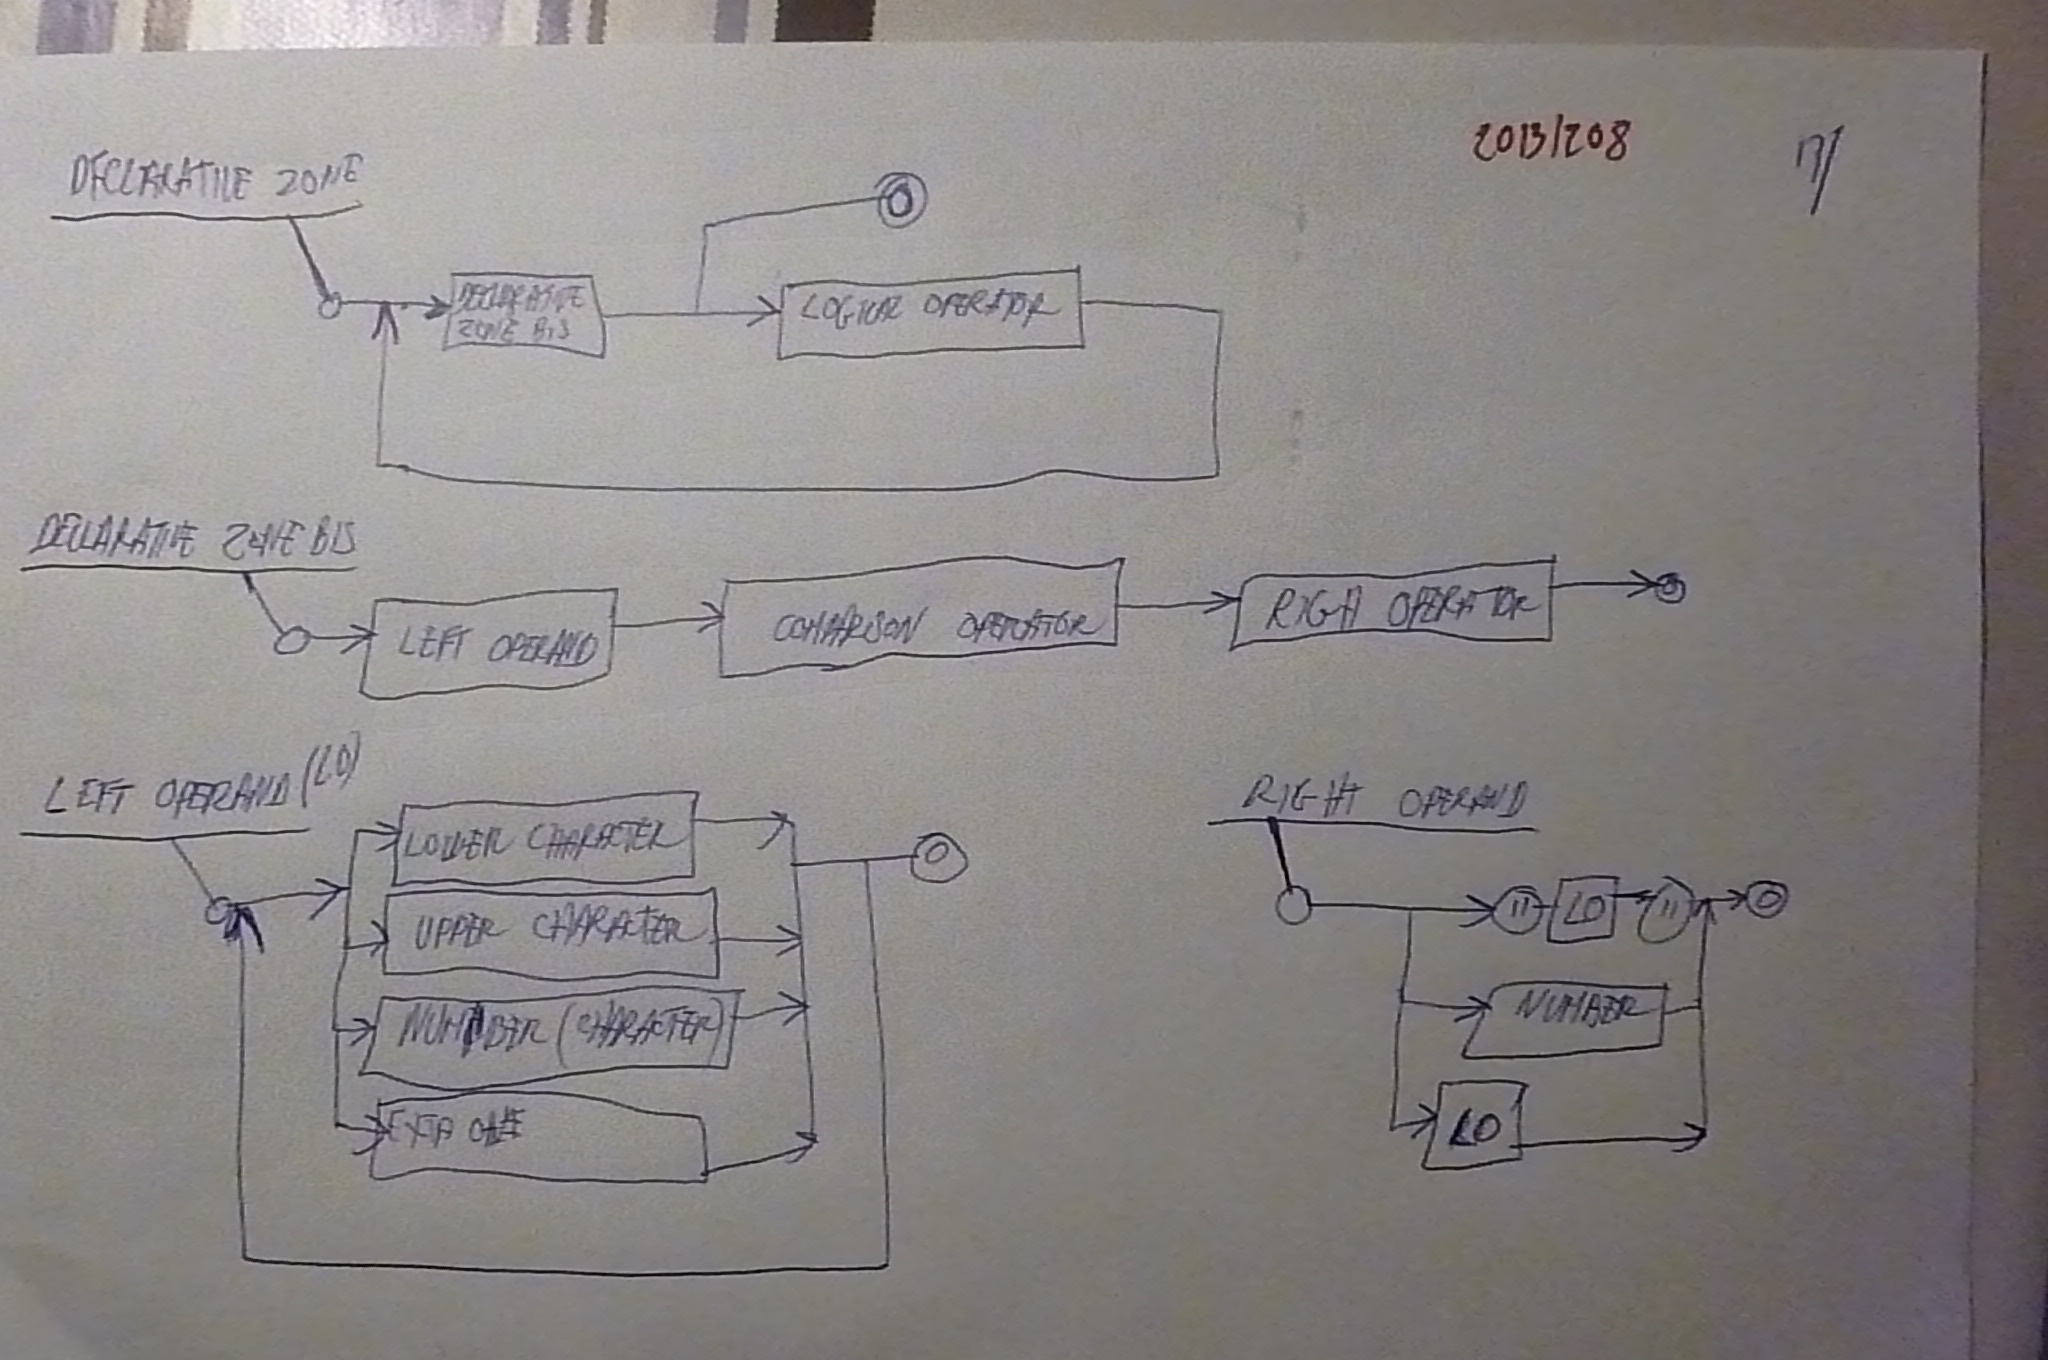 2013/208
DECLARATIVE ZONE
DECLARATIVE
ZONE BIS
LOGICAL OPERATOR
DECLARATIVE ZONE BIS
LEFT OPERAND
COMPARISON OPERATOR
RIGH OPERATOR
LEFT OPERAND (LO)
LOWER CHARACTER
UPPER CHARACTER
NUMBER (CHARACTER)
RIGHT OPERAND
" LO "
NUMBER
LO